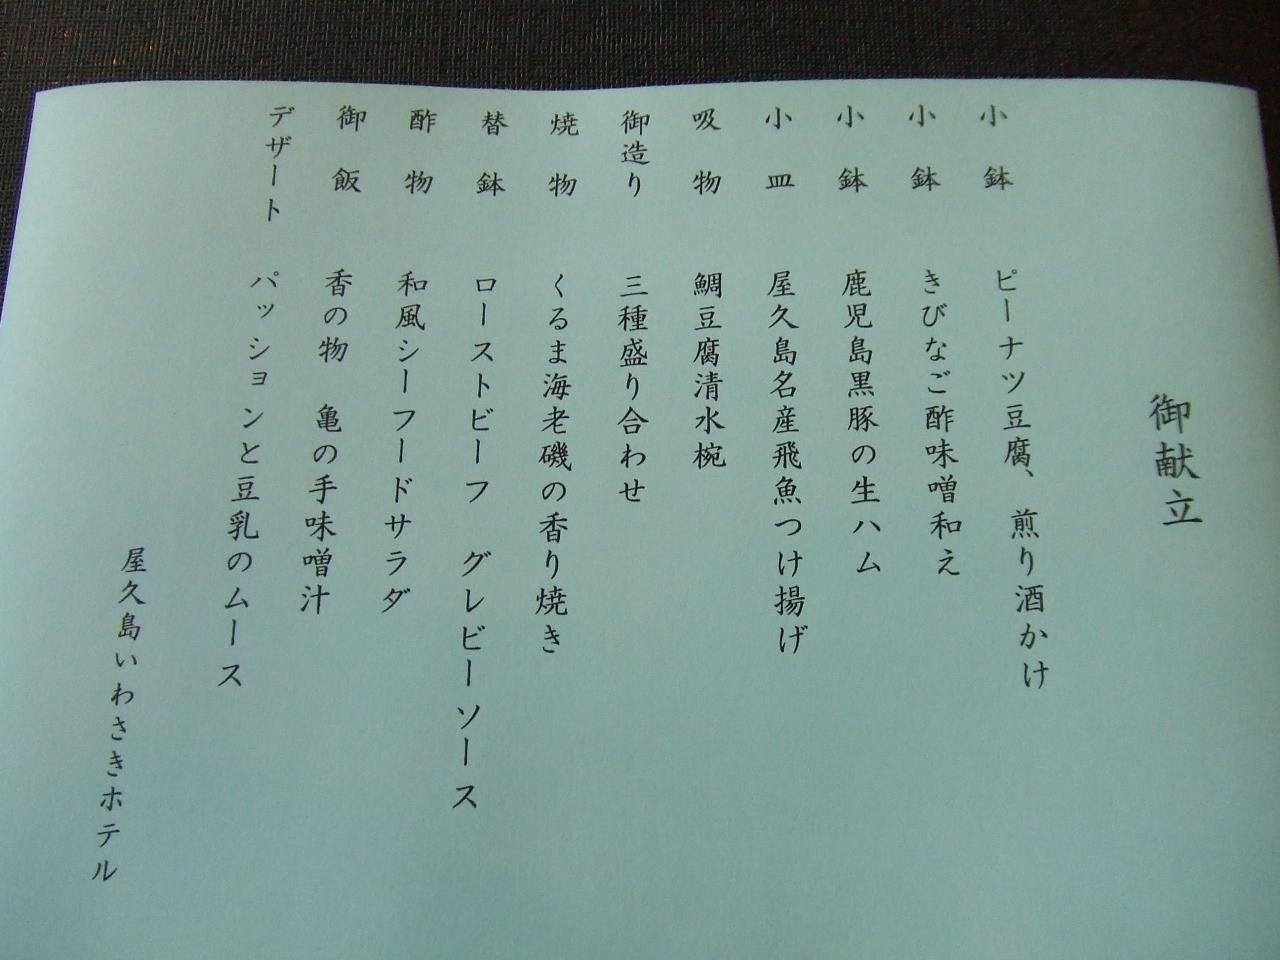 御献立
小鉢 ピーナツ豆腐、煎り酒かけ
小鉢 きびなご酢味噌和え
小鉢 鹿児島黒豚の生ハム
小皿 屋久島名産飛魚つけ揚げ
吸物 鯛豆腐清水椀
御造り 三種盛り合わせ
焼物 くるま海老磯の香り焼き
替鉢 ローストビーフ グレビーソース
酢物 和風シーフードサラダ
御飯 香の物 亀の手味噌汁
デザート パッションと豆乳のムース
屋久島いわさきホテル